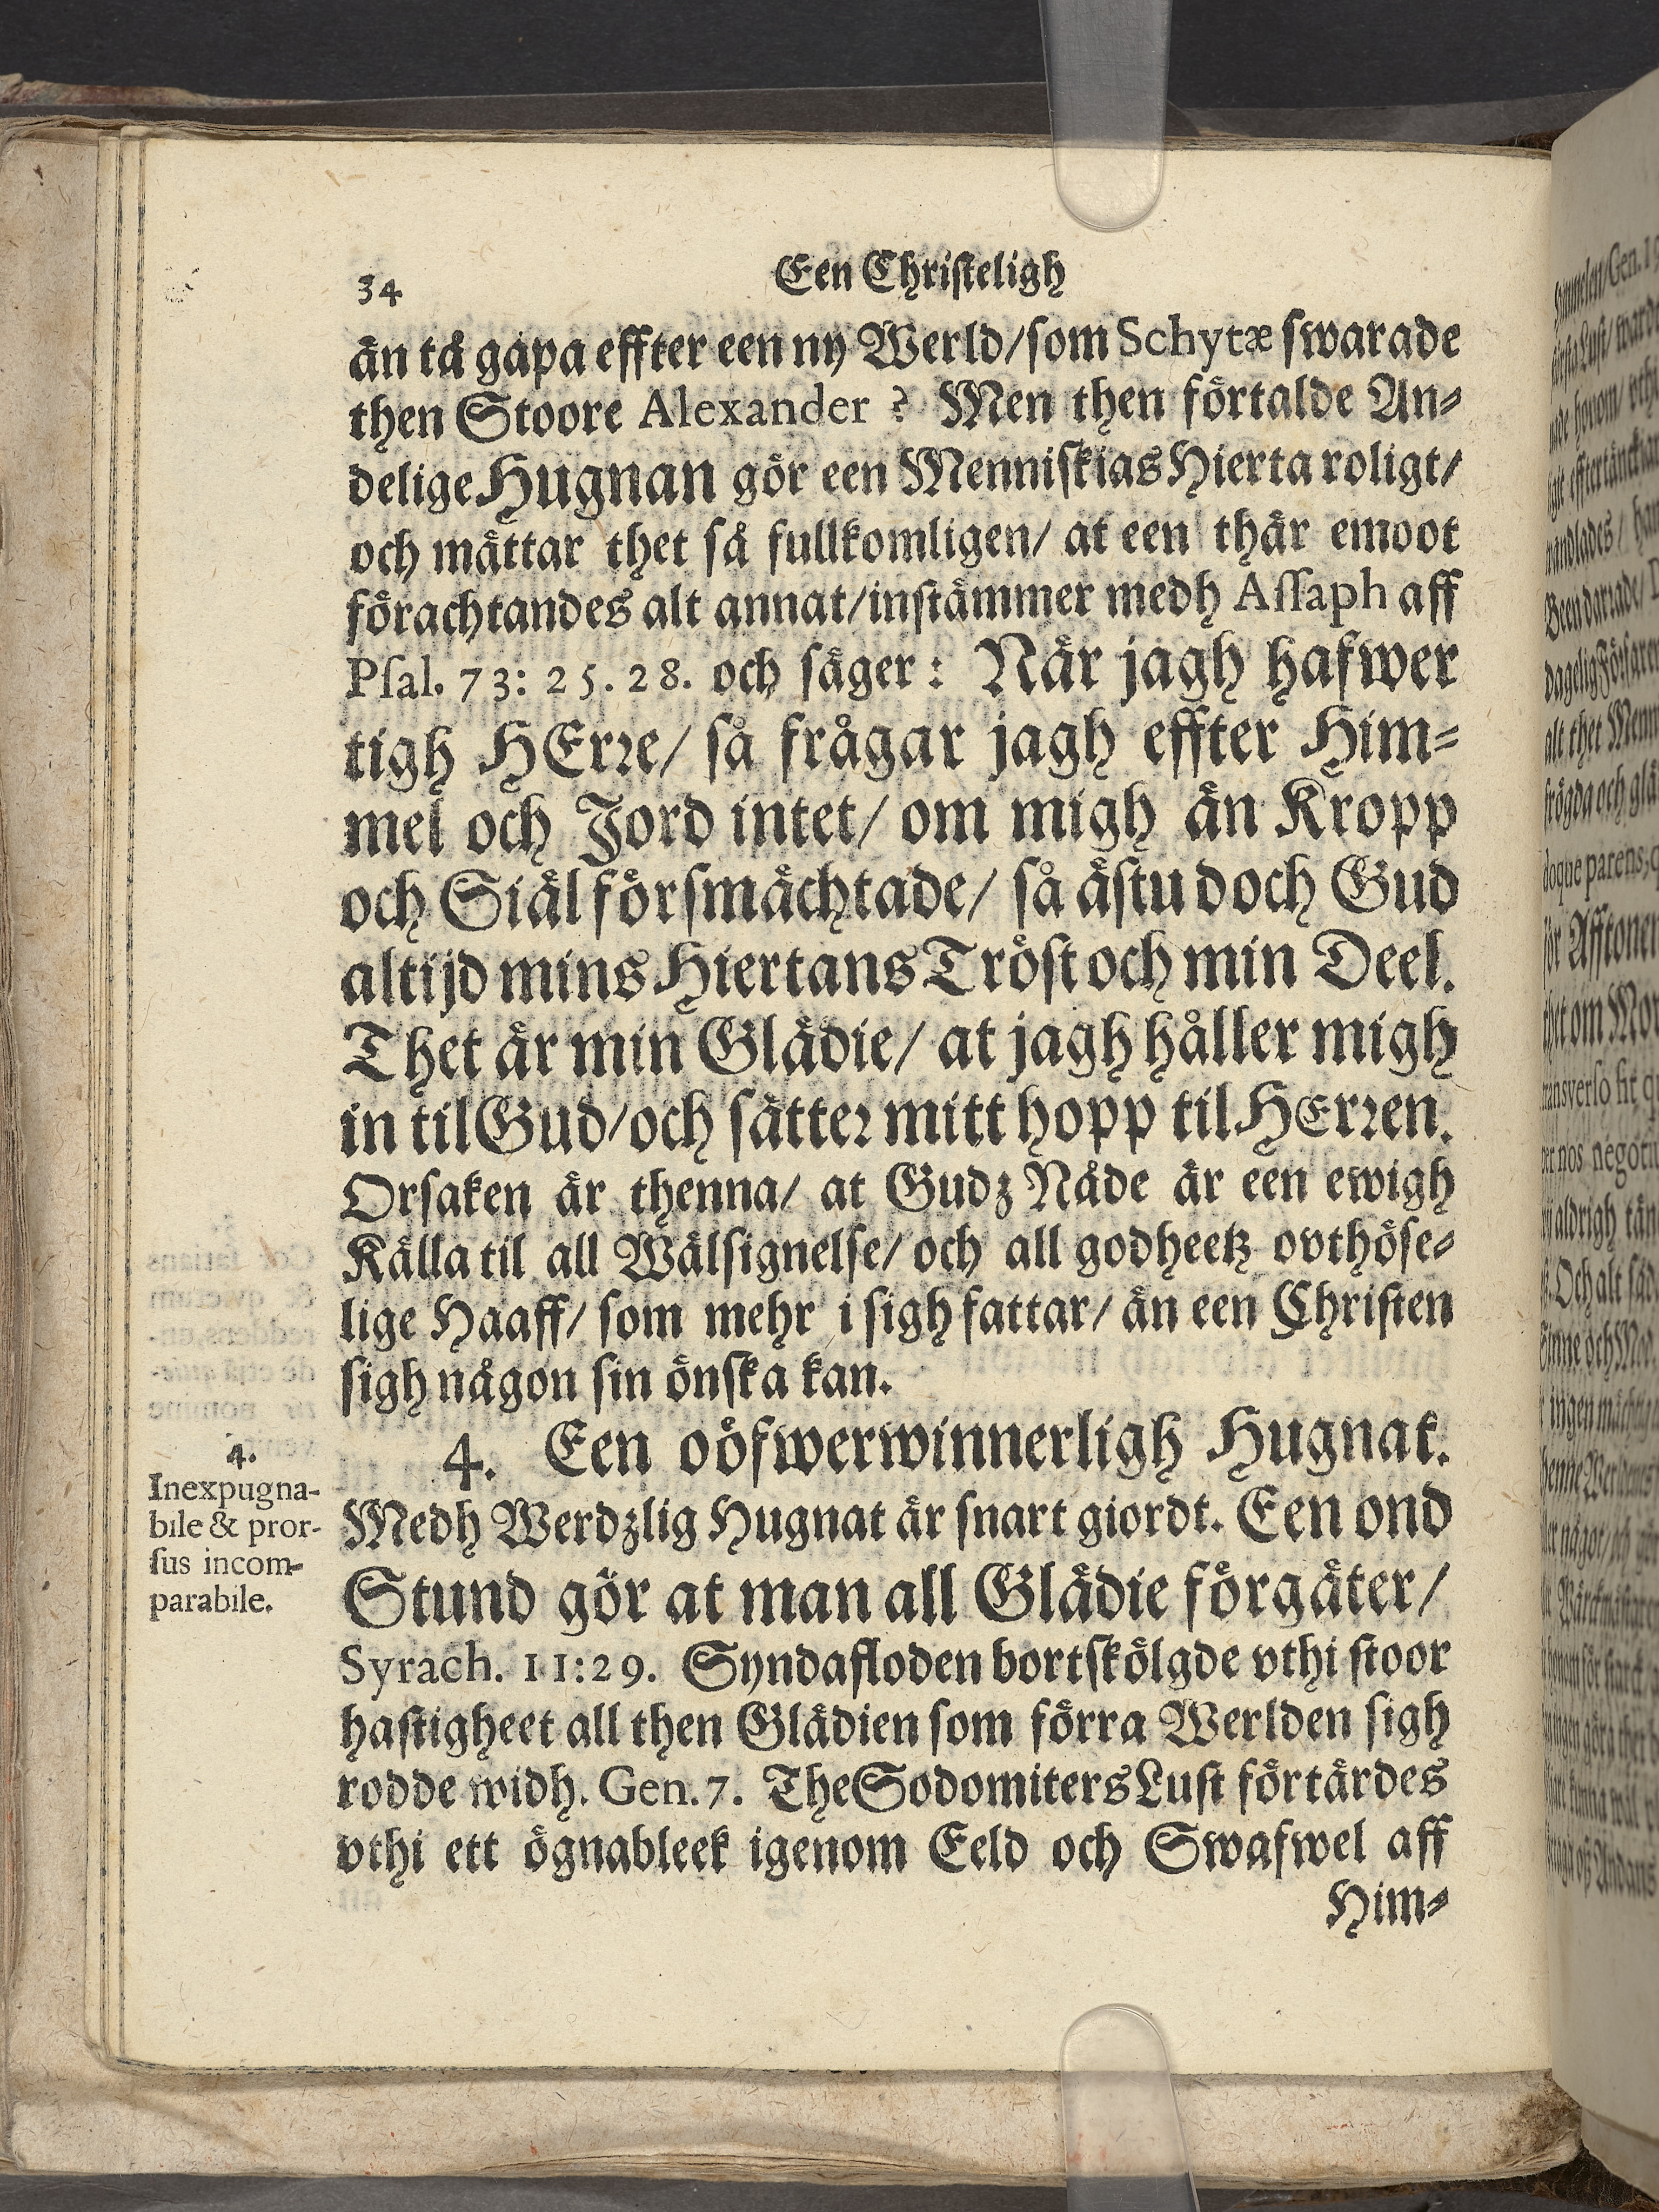 34
Een Christeligh
än tå gapa effter een ny Werld/som Schytæ swarade
then Stoore Alexander ? Men then förtalde An-
delige Hugnan gör een Menniskias Hierta roligt/
och mättar thet så fullkomligen/ at een thär emoot
förachtandes alt annat/instämmer medh Assaph aff
Psal. 73: 25. 28. och säger: När jagh hafwer
tigh HErre/ så frågar jagh effter Him-
mel och Jord intet/ om migh än Kropp
och Siäl försmächtade/ så ästu doch Gud
altijd mins Hiertans Tröst och min Deel.
Thet är min Glädie/ at jagh håller migh
in til Gud/och sätter mitt hopp til HErren.
Orsaken är thenna/ at Gudz Nåde är een ewigh
Källa til all Wälsignelse/ och all godheetz ovthöse-
lige Haaff/ som mehr i sigh fattar/ än een Christen
sigh någon sin önska kan.
4. Een oöfwerwinnerligh Hugnat.
4.
Inexpugna-
bile & pror-
sus incom-
parabile.
Medh Werdzlig Hugnat är snart giordt. Een ond
Stund gör at man all Glädie förgäter/
Syrach. 11:29. Syndafloden bortskölgde vthi stoor
hastigheet all then Glädien som förra Werlden sigh
rodde widh. Gen. 7. The Sodomiters Lust förtärdes
vthi ett ögnableek igenom Eeld och Swafwel aff
Him-